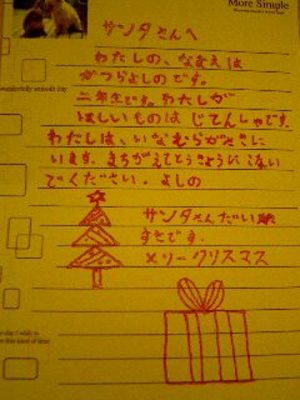 More Simple
サンタさんへ
わたしの、なまえは
かつらよしのです。
二年生です。わたしが
ほしいものは じてんしゃです。
わたしは、いなむらがさきに
います。まちがえてとうきょうにこない
でください。よしの
サンタさんだい
すきです。
メリークリスマス